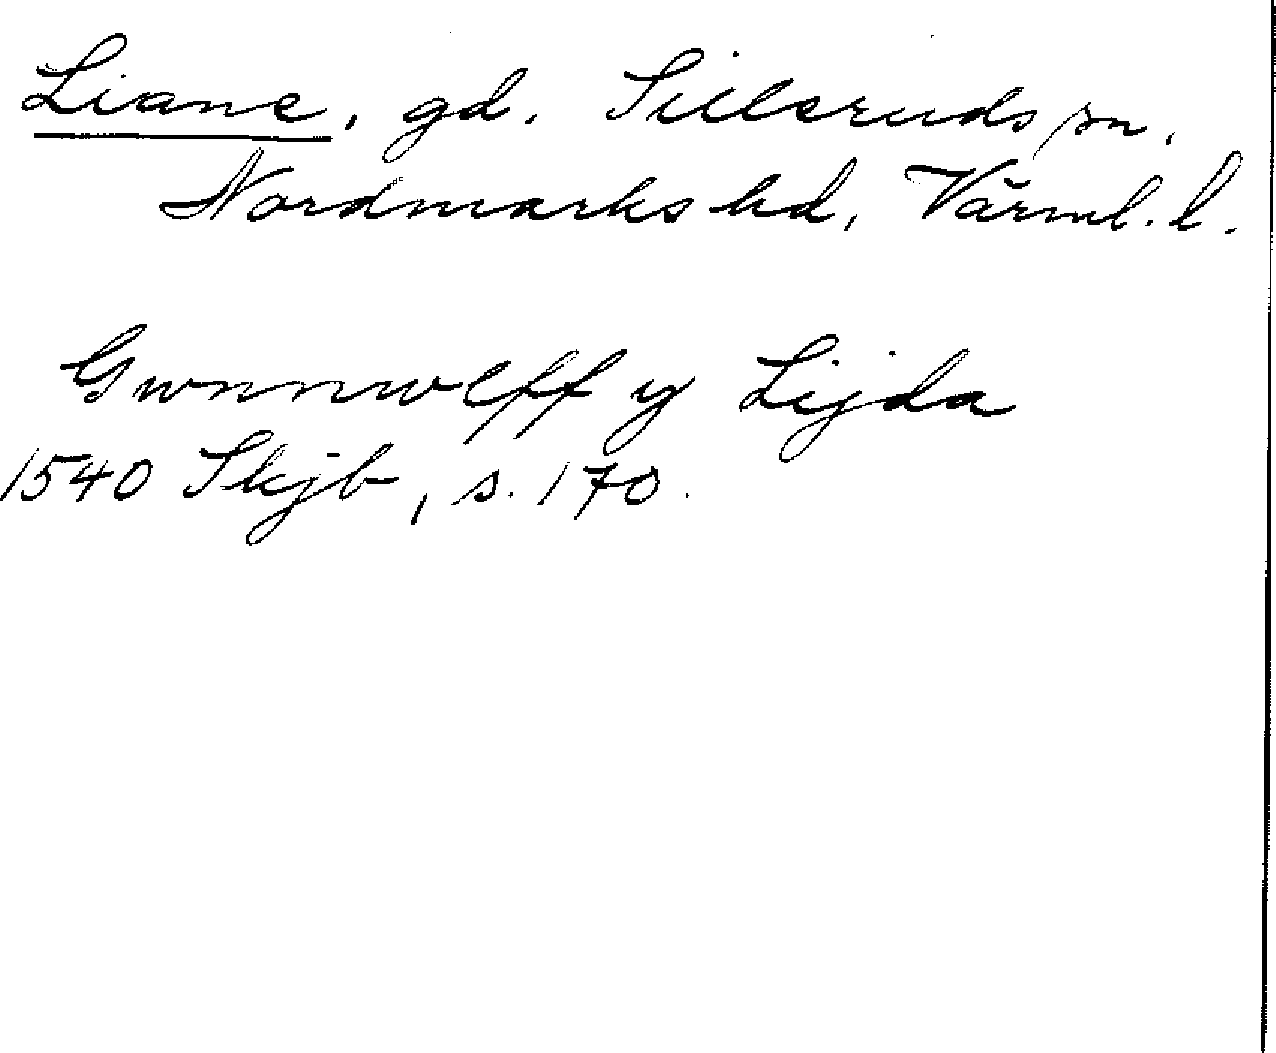 Liane, gd. Silleruds sn,
Nordmarks hd, Värml. l.
Gwnnwlff y Lijda
1540 Skjb, s. 170.